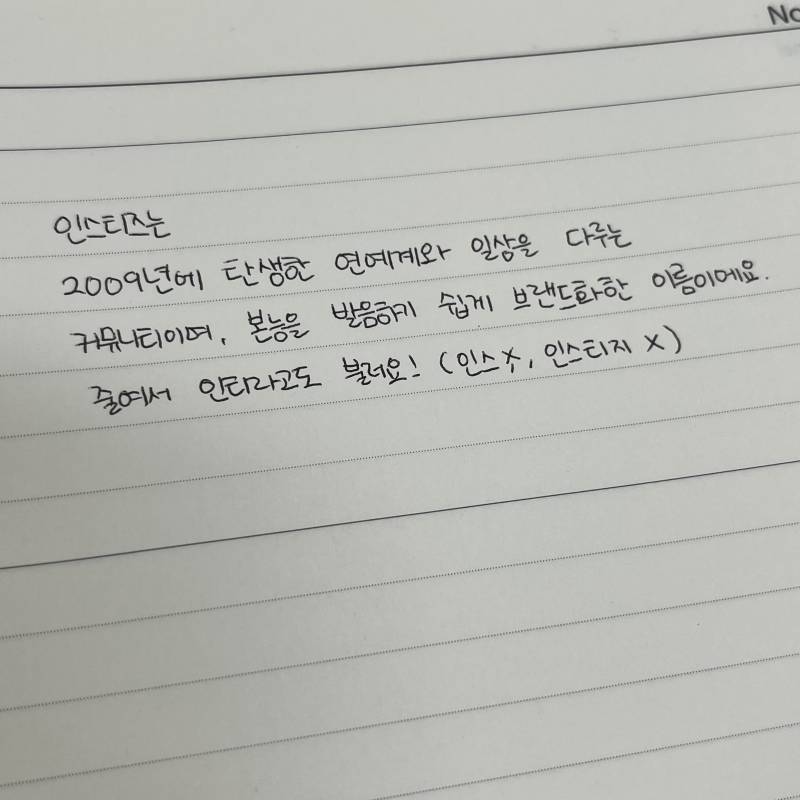 No
인스티즈는
2009년에 탄생한 연예계와 일상을 다루는
커뮤니티이며, 본능을 발음하기 쉽게 브랜드화한 이름이에요.
줄여서 인티라고도 불러요! (인스X, 인스티지 X)